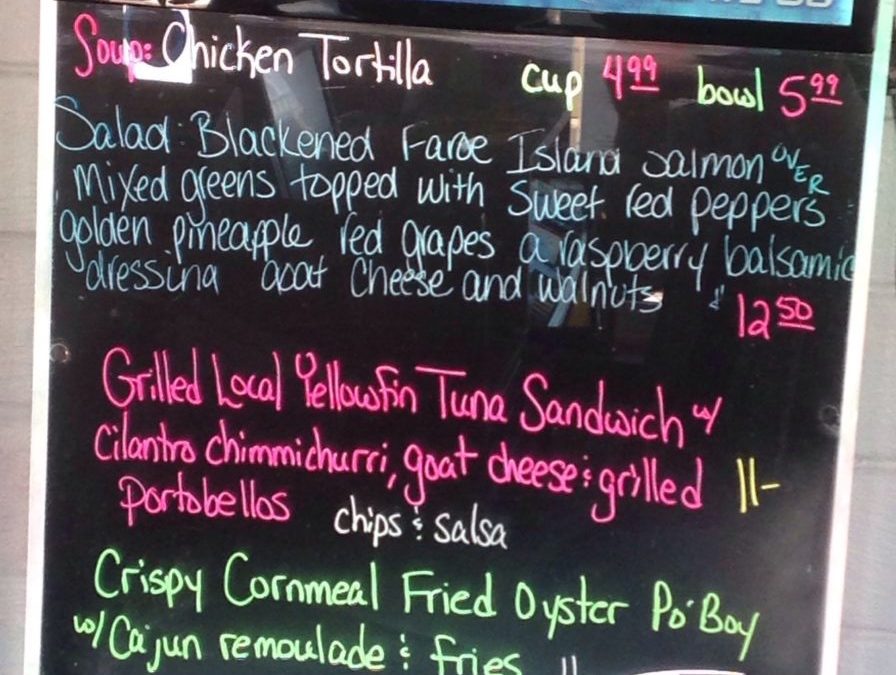 Soup: Chicken Tortilla cup 4.99 bowl 5.99
Salad: Blackened Faroe Island Salmon OVER
Mixed greens topped with Sweet red peppers
golden pineapple red grapes a raspberry balsamic
dressing goat Cheese and walnuts $
12.50
Grilled Local Yellowfin Tuna Sandwich w/
Cilantro chimmichurri, goat cheese & grilled 11-
portobellos chips & salsa
Crispy Cornmeal Fried Oyster Po'Boy
w/ Cajun remoulade & fries 11